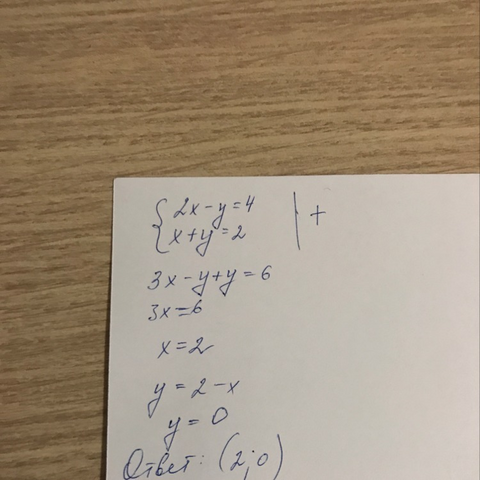 { 2x-y=4 | +
x+y=2
3x-y+y=6
3x=6
x=2
y=2-x
y=0
Ответ: (2;0)